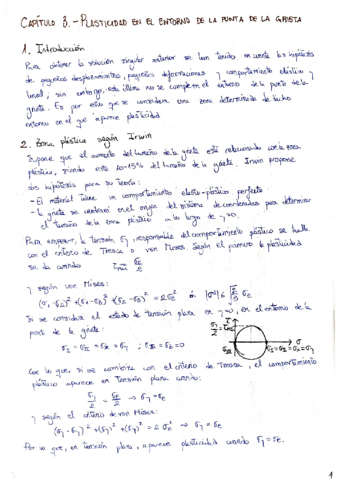 CAPÍTULO 3.- PLASTICIDAD EN EL ENTORNO DE LA PUNTA DE LA GRIETA
1. Introducción
Para obtener la solución singular anterior se han tenido en cuenta las hipótesis
de pequeños desplazamientos, pequeñas deformaciones y comportamiento elástico y
lineal; sin embargo, esta última no se cumple en el entorno de la punta de la
grieta. Es por ello que se considera una zona determinada de dicho
entorno en el que aparece plasticidad
2. Zona plástica según Irwin
Supone que el aumento del tamaño de la grieta está relacionado con la zona
plástica, siendo este 10-15% del tamaño de la grieta. Irwin propone
dos hipótesis para su teoría:
- El material tiene un comportamiento elasto-plástico perfecto
- La grieta se centrará en el origen del sistema de coordenadas para determinar
el tamaño de la zona plástica a lo largo de y=0.
Para empezar, la tensión σy responsable del comportamiento plástico se halla
con el criterio de Tresca o von Mises. Según el primero la plasticidad
se da cuando τmax σe/2
y según von Mises:
(σ1-σ2)² + (σ1-σ3)² + (σ2-σ3)² = 2σe² ó |σd| ≤ √2/3 σe
Si se considera el estado de tensión plana en y=0, en el entorno de la
punta de la grieta:
σI = σII = σx = σy ; σIII = σz = 0
σ/2 = τmax τ
σIII σ σI = σII = σx = σy
Con lo que, si se combina con el criterio de Tresca, el comportamiento
plástico aparece en tensión plana cuando:
σy/2 = σe/2 → σy = σe
y según el criterio de von Mises:
(σy - σy)² + (σy)² + (σy)² = 2 σe² → σy = σe
Por lo que, en tensión plana, aparece plasticidad cuando σy = σe.
1